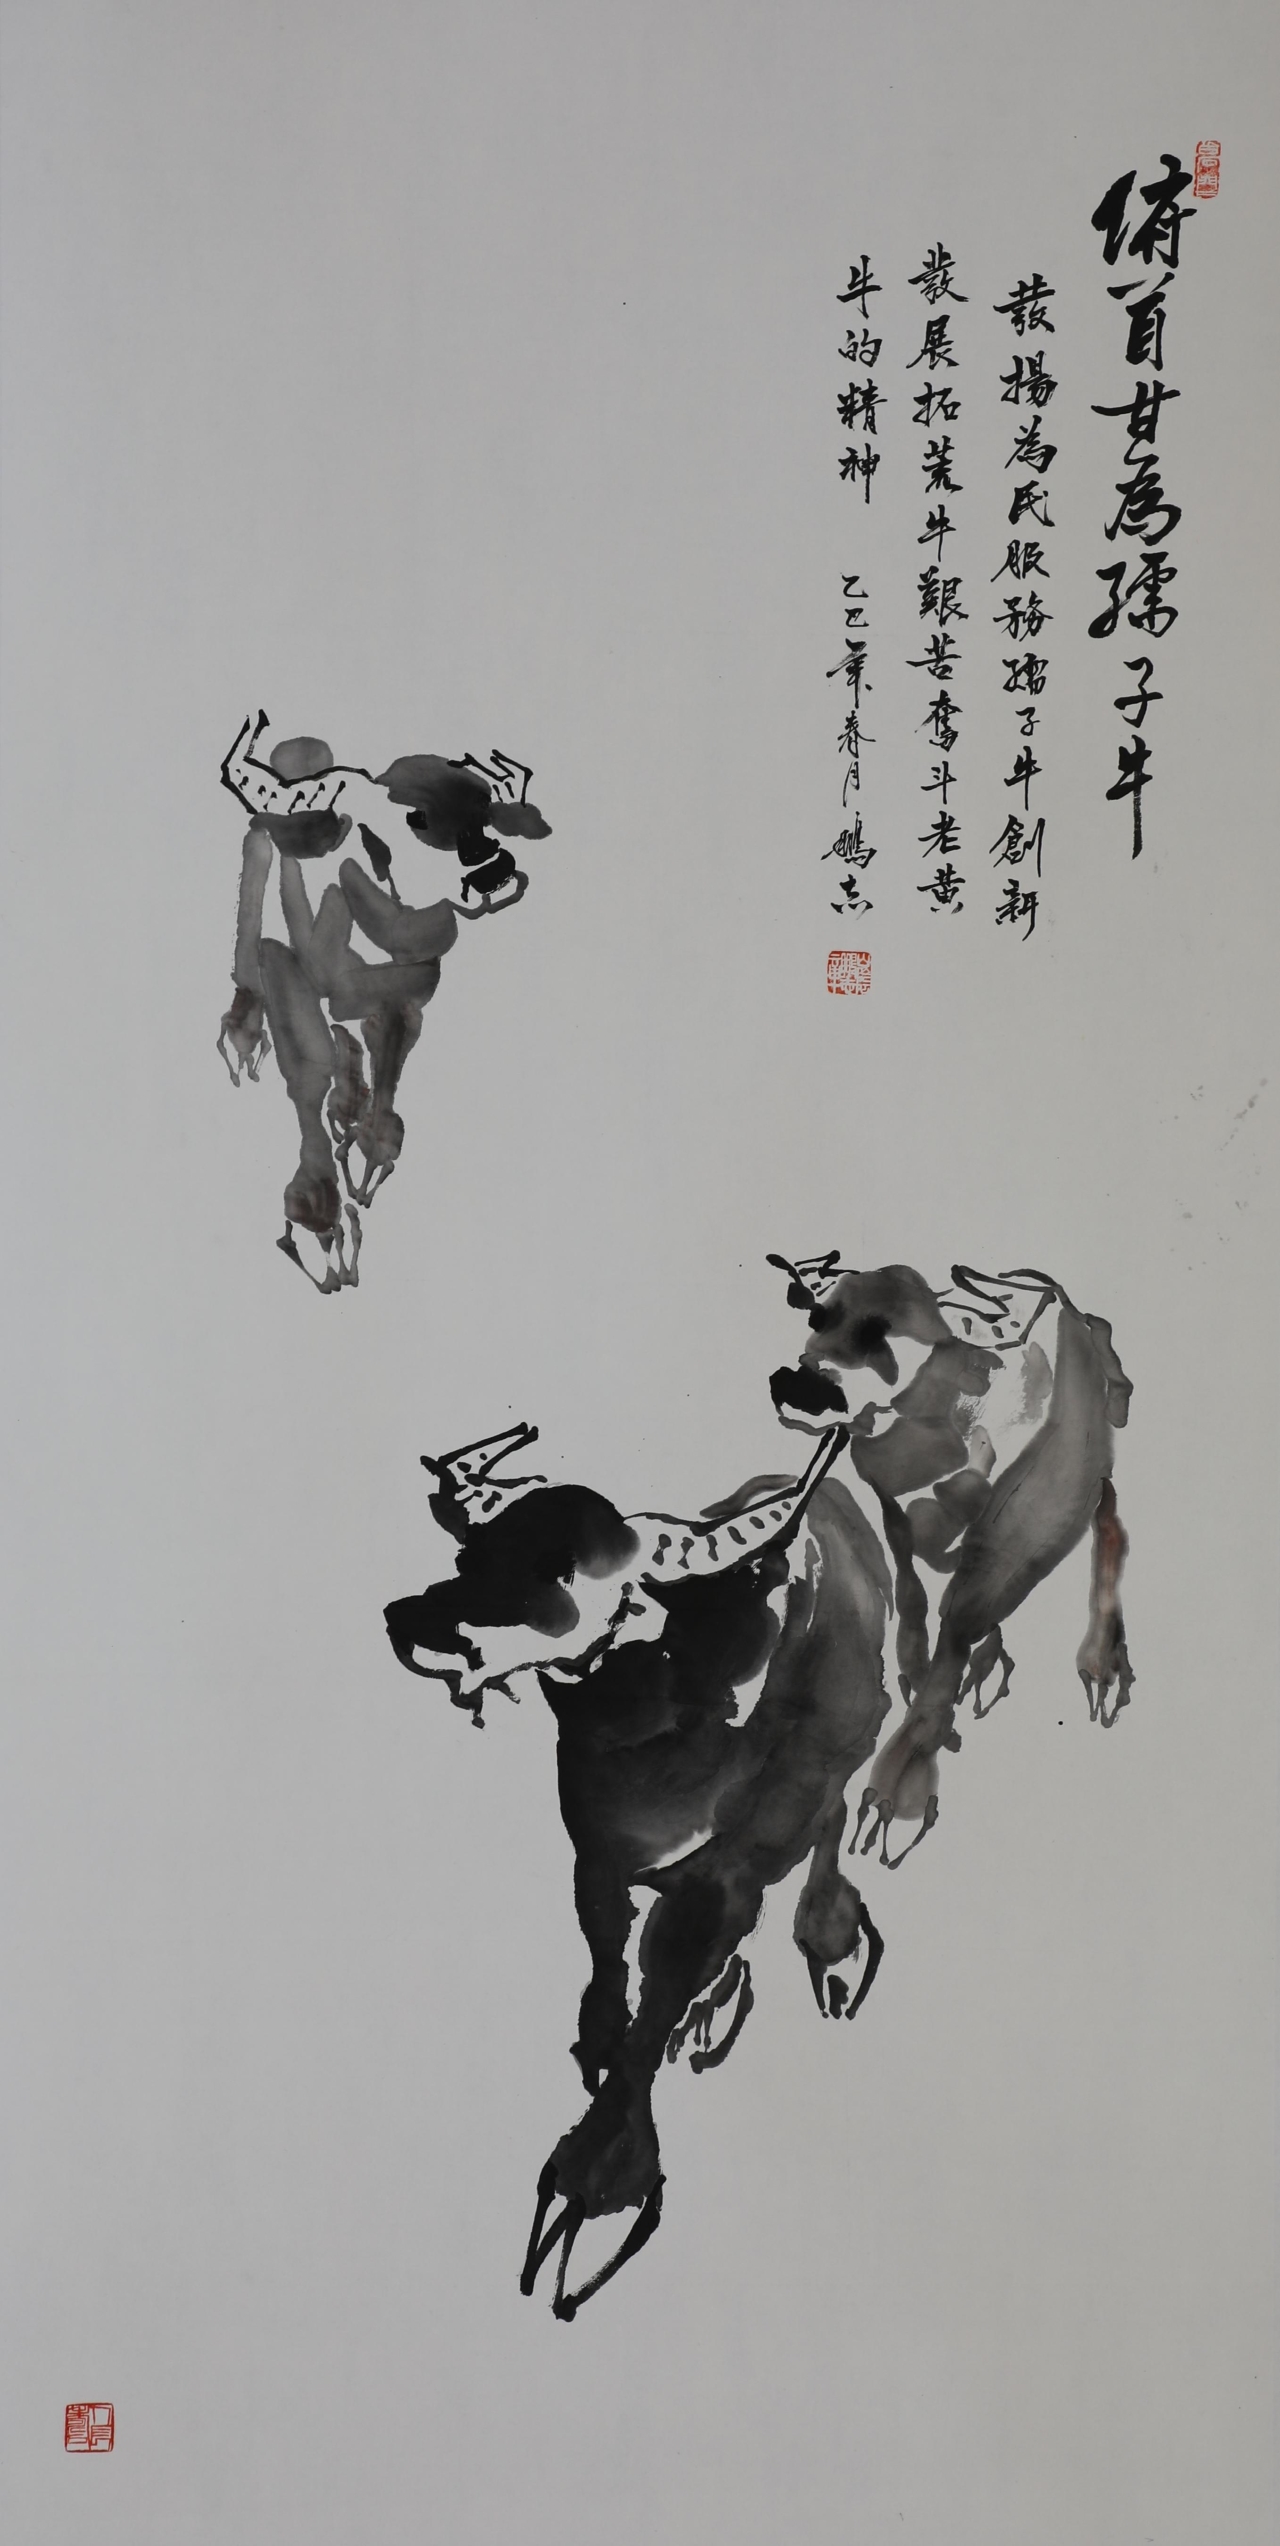 俯首甘為孺子牛
發揚為民服務孺子牛創新
發展拓荒牛艱苦奮斗老黄
牛的精神 乙巳年春月鵬志